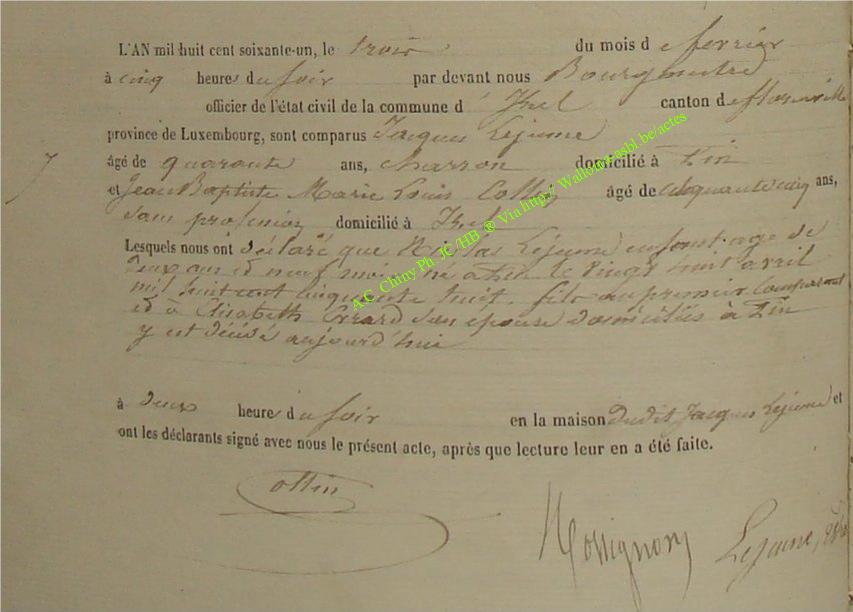 L'AN mil huit cent soixante-un, le trois du mois de fevrier
à cinq heures du soir par devant nous Bourgmestre
officier de l'état civil de la commune d'Izel canton de florenville
province de Luxembourg, sont comparus Jacques Lejeune
7 âgé de quarante ans, charron domicilié à Pin
et Jean Baptiste Marie Louis Collin âgé de cinquante cinq ans,
sans profession domicilié à Izel
Lesquels nous ont déclaré que Nicolas Lejeune enfant agé de
deux ans et neuf mois né à Pin le vingt huit avril
mil huit cent cinquante huit, fils du premier comparant
et à Elisabeth Evrard son épouse domiciliés à Pin
y est décédé aujourd'hui
à deux heures du soir en la maison dudit Jacques Lejeune et
ont les déclarants signé avec nous le présent acte, après que lecture leur en a été faite.
Collin
Rossignon Lejeune
A.C. Chiny Ph. JC /HB ® Via http://Wallonia.asbl.be/actes